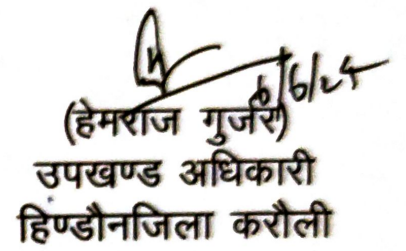 6/6/24
(हेमराज गुर्जर)
उपखण्ड अधिकारी
हिण्डौनजिला करौली